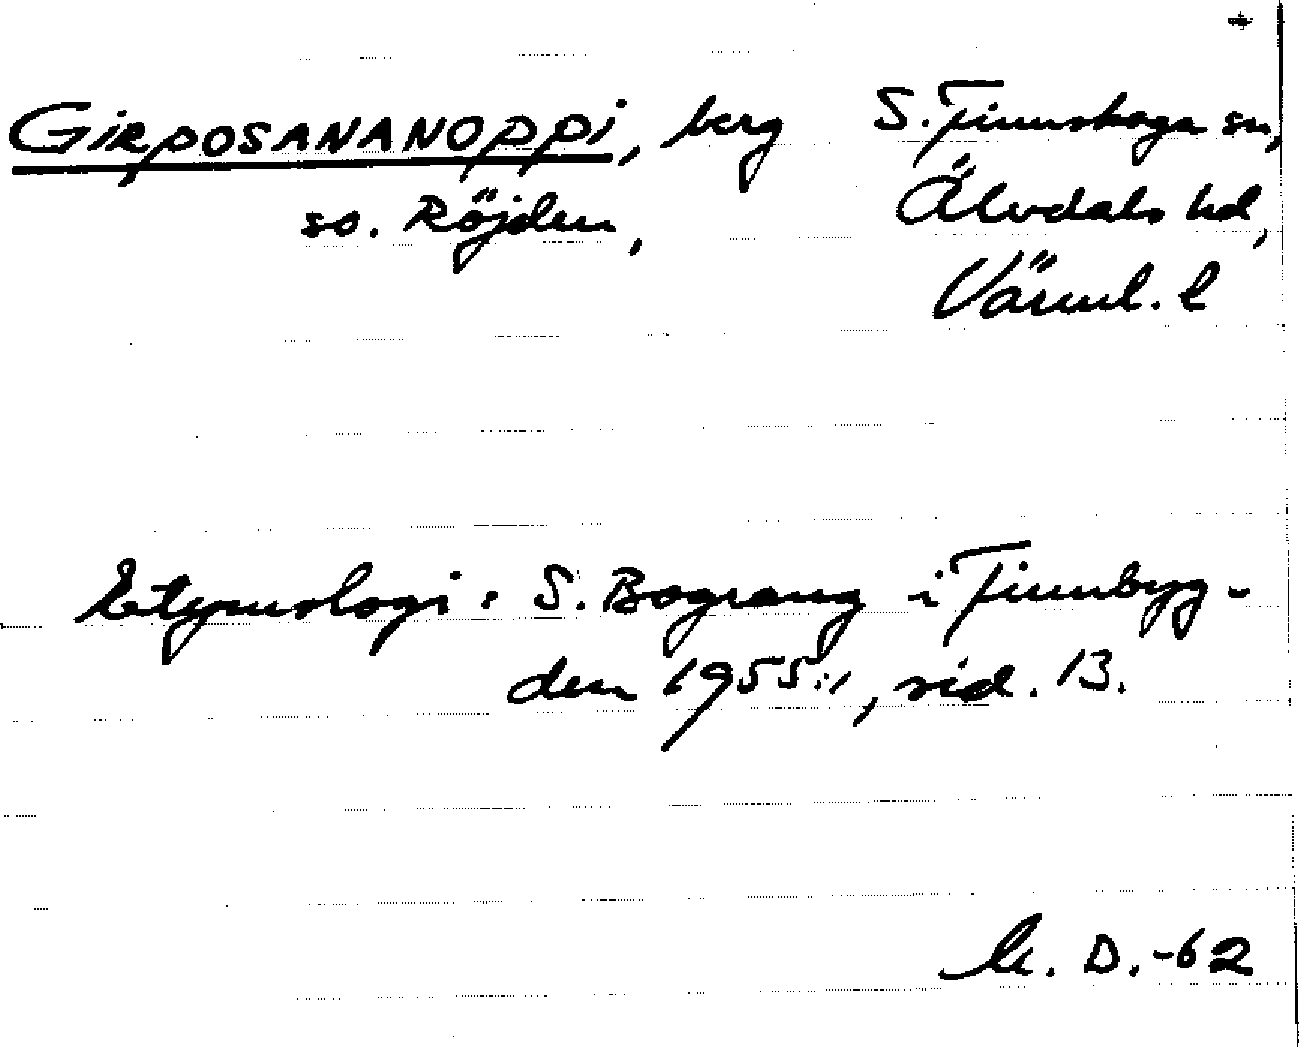 GIRPOSANANOPPI, berg S. Finnskoga sn,
so. Röjden, Älvdals hd,
Värml. l
Etymologi: S. Bograng i Finnbyg-
den 1955:1, sid. 13.
D.-62